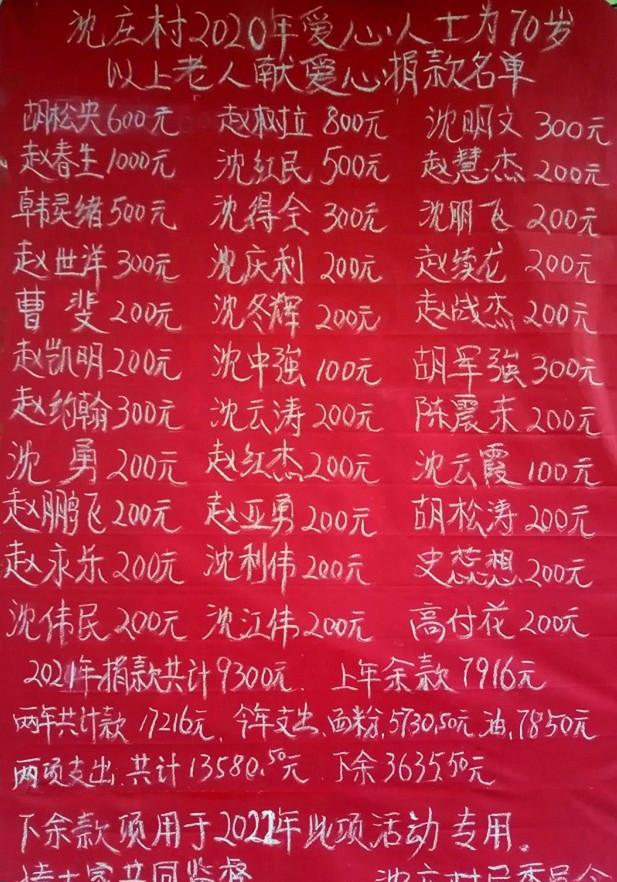 沈庄村2020年爱心人士为70岁
以上老人献爱心捐款名单
胡松央600元 赵树拉800元 沈明文300元
赵春生1000元 沈红民500元 赵慧杰200元
韩灵绪500元 沈得全300元 沈丽飞200元
赵世洋300元 沈庆利200元 赵续龙200元
曹斐200元 沈冬辉200元 赵战杰200元
赵凯明200元 沈中强100元 胡军强300元
赵约翰300元 沈云涛200元 陈震东200元
沈勇200元 赵红杰200元 沈云霞100元
赵鹏飞200元 赵亚勇200元 胡松涛200元
赵永乐200元 沈利伟200元 史蕊想200元
沈伟民200元 沈江伟200元 高付花200元
2021年捐款共计9300元. 上年余款7916元
两年共计款17216元. 今年支出、面粉,5730.50元 油、7850元
两项支出.共计13580.50元.下余3635.50元
下余款须用于2022年此项活动专用。
请大家共同监督 沈庄村民委员会